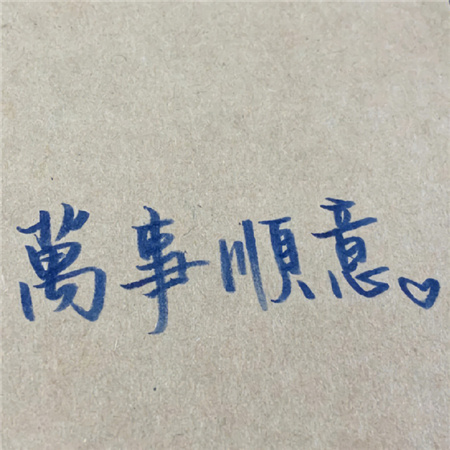 萬事順意。♡